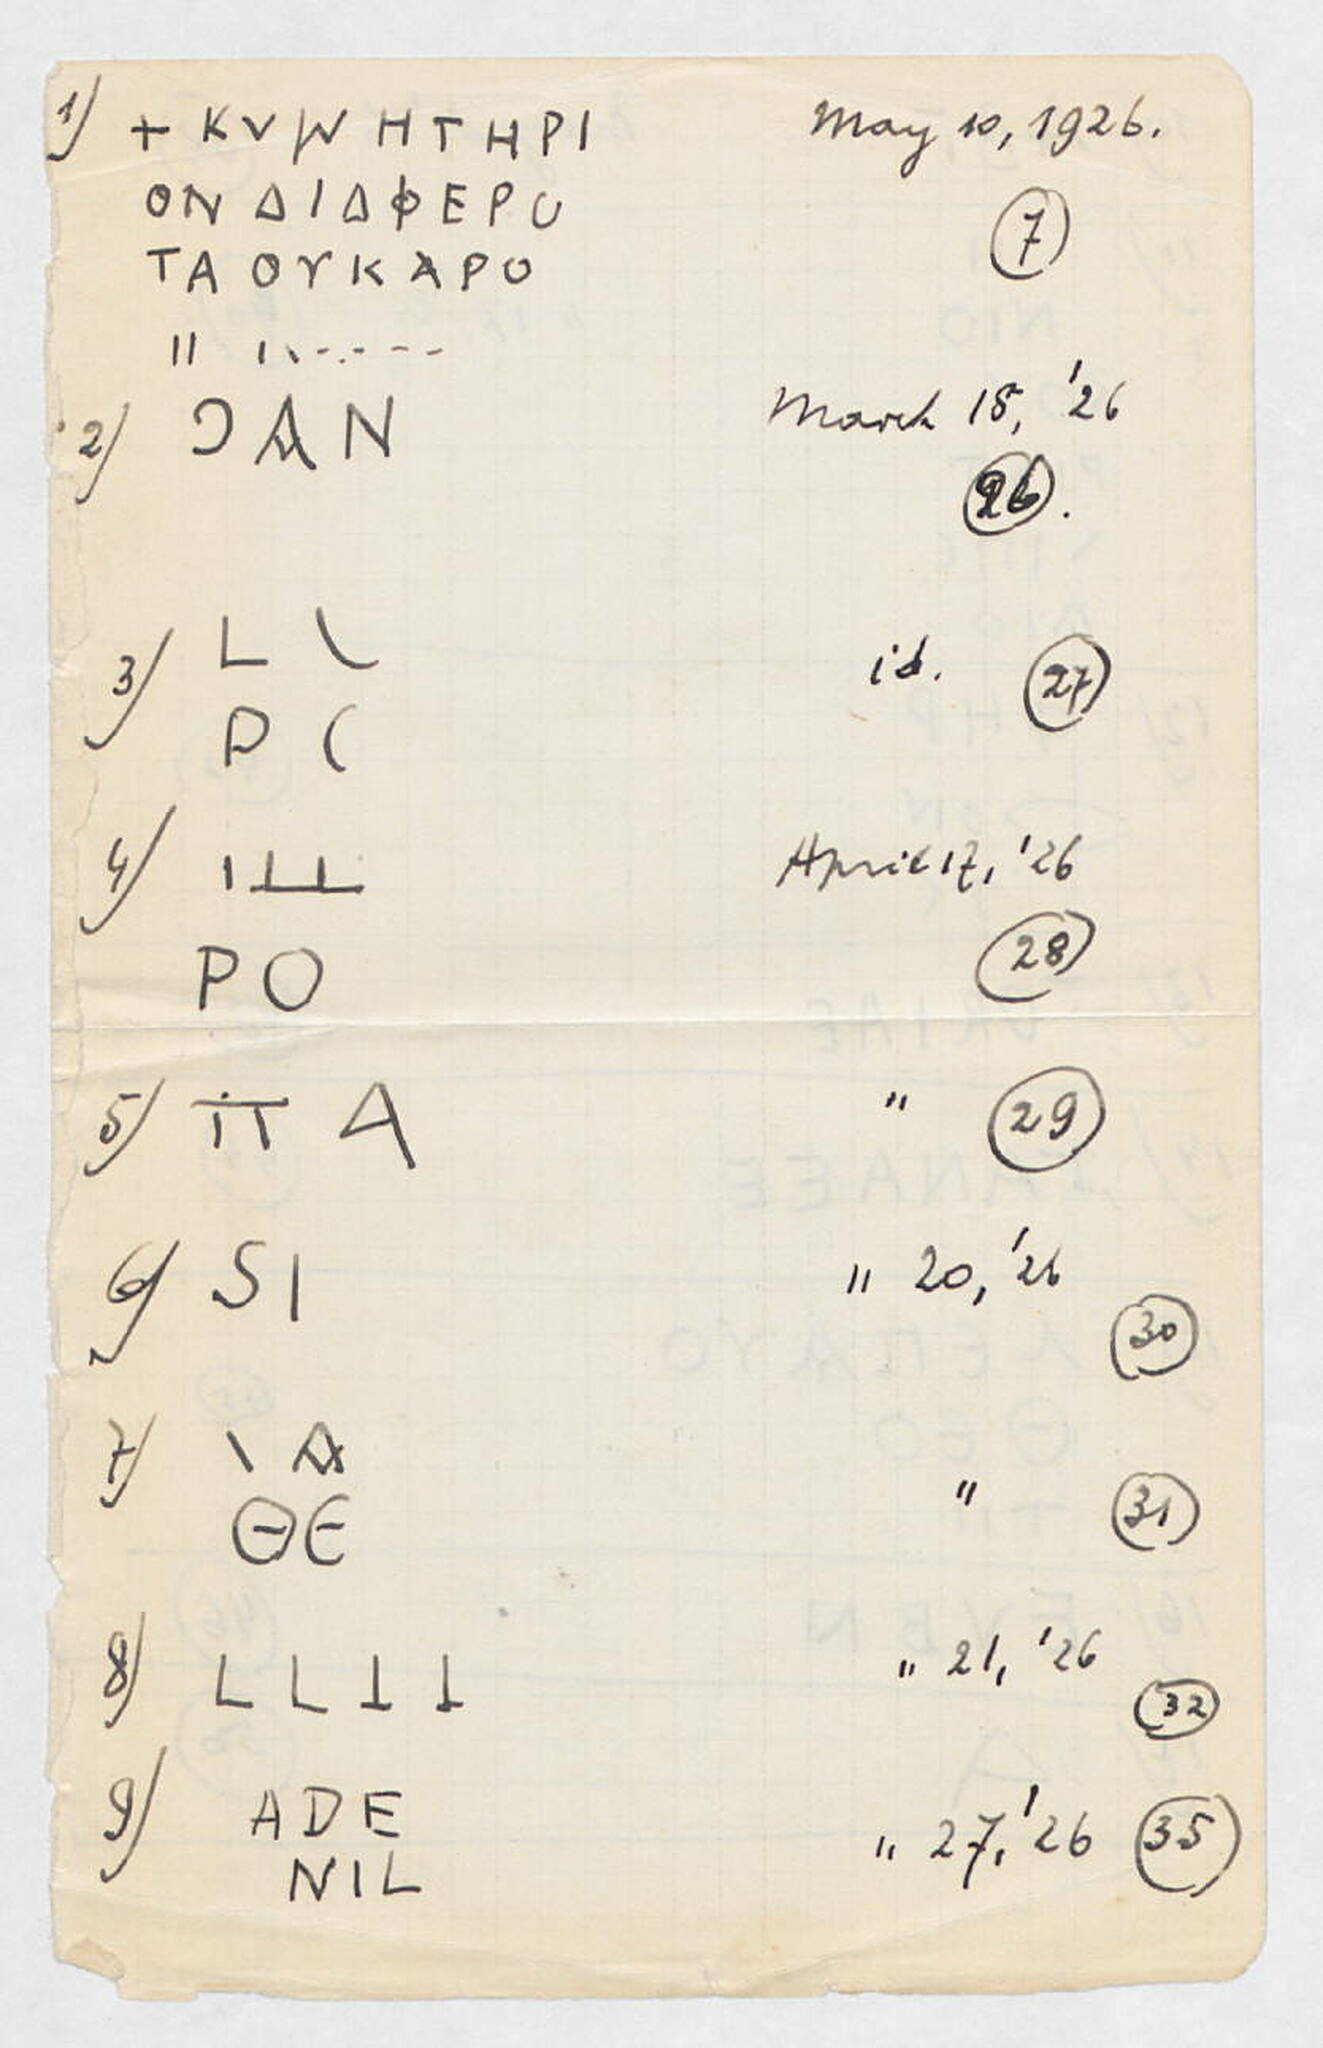 1) + ΚΥΜΗΤΗΡΙ May 10, 1926.
ΟΝ ΔΙΑΦΕΡΟ 7
ΤΑ ΟΥΚΑΡΟ
2) JAN March 15, '26
26.
3) L \ id. 27
P (
4) I⊥⊥ April 17, '26
PO 28
5) A " 29
6) SI " 20, '26
30
7) \ A
ΘΕ " 31
8) L L ⊥ ⊥ " 21, '26
32
9) ADE " 27, '26 35
NIL